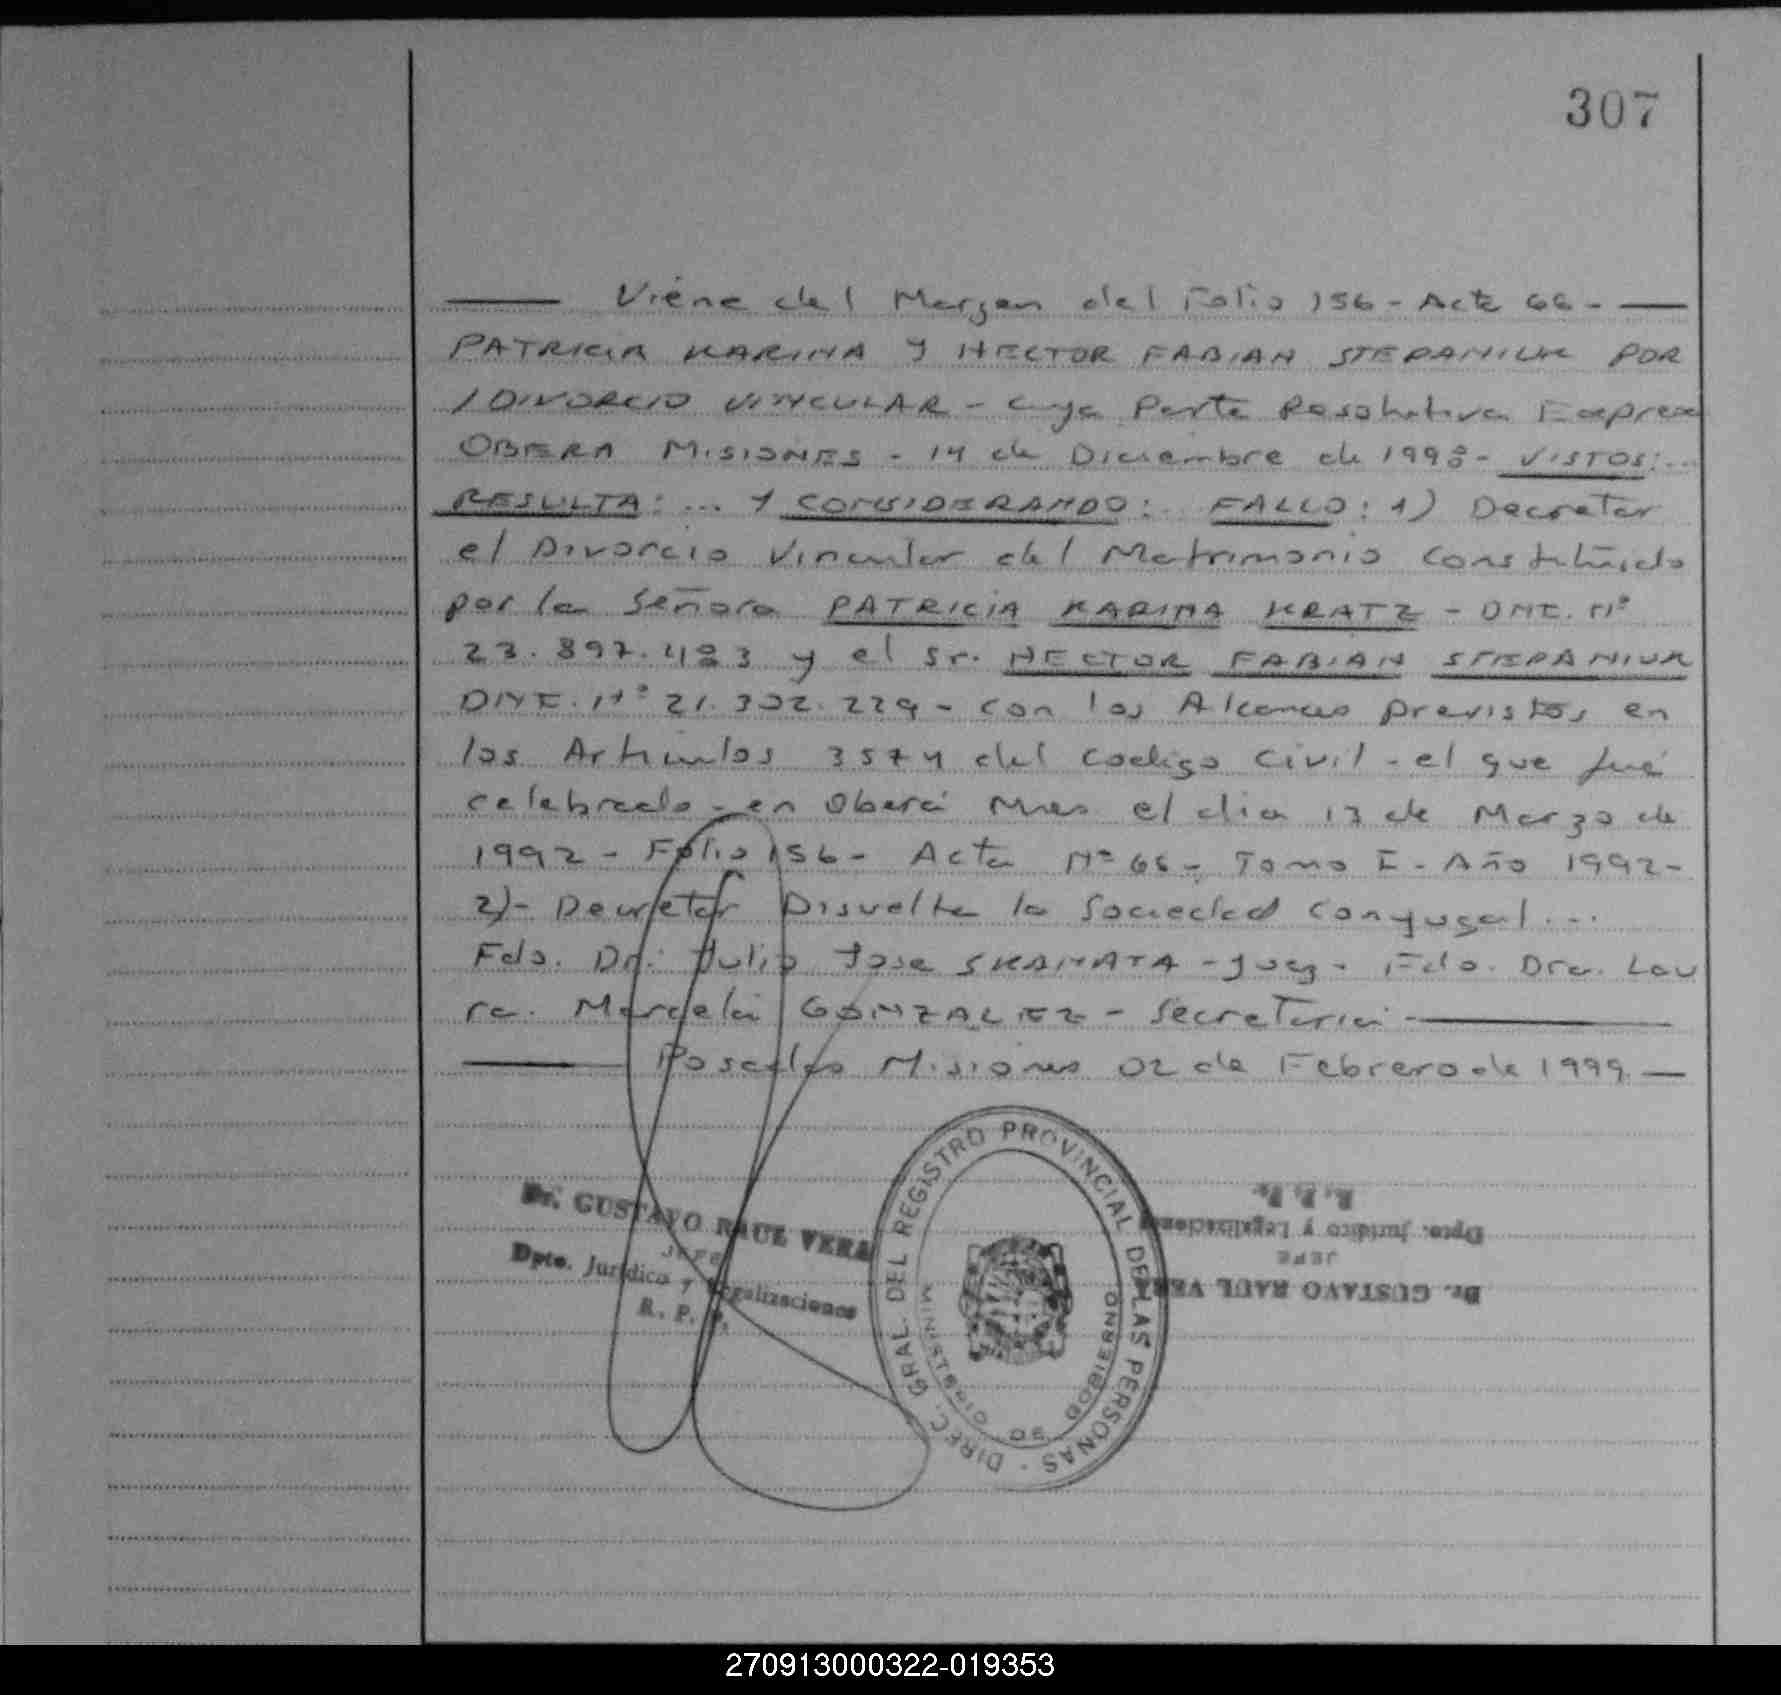 307
Viene del Margen del Folio 156 - Acta 66 -
PATRICIA KARINA Y HECTOR FABIAN STEPANIUK POR
/ DIVORCIO VINCULAR - cuya Parte Resolutiva Expresa
OBERA MISIONES - 14 de Diciembre de 1998 - VISTOS: ...
RESULTA: ... Y CONSIDERANDO: .. FALLO: 1) Decretar
el Divorcio Vincular del Matrimonio Constituido
por la Señora PATRICIA KARINA KRATZ - DNI. Nº
23.897.483 y el Sr. HECTOR FABIAN STEPANIUK
DNI. Nº 21.302.229 - con los Alcances previstos en
los Articulos 3574 del Codigo Civil - el que fué
celebrado - en Oberá Mnes el dia 13 de Marzo de
1992 - Folio 156 - Acta Nº 66 - Tomo I - Año 1992 -
2) - Decretar Disuelta la Sociedad Conyugal ...
Fdo. Dr. Julio Jose SKANATA - Juez - Fdo. Dra. Lau
ra. Marcela GONZALEZ - Secretaria
Posadas Misiones 02 de Febrero de 1999 -
Dr. GUSTAVO RAUL VERA
JEFE
Dpto. Jurídico y Legalizaciones
R. P. P.
DIREC. GRAL. DEL REGISTRO PROVINCIAL DE LAS PERSONAS -
MINISTERIO DE GOBIERNO
Dr. GUSTAVO RAUL VERA
JEFE
Dpto. Jurídico y Legalizaciones
R. P. P.
270913000322-019353